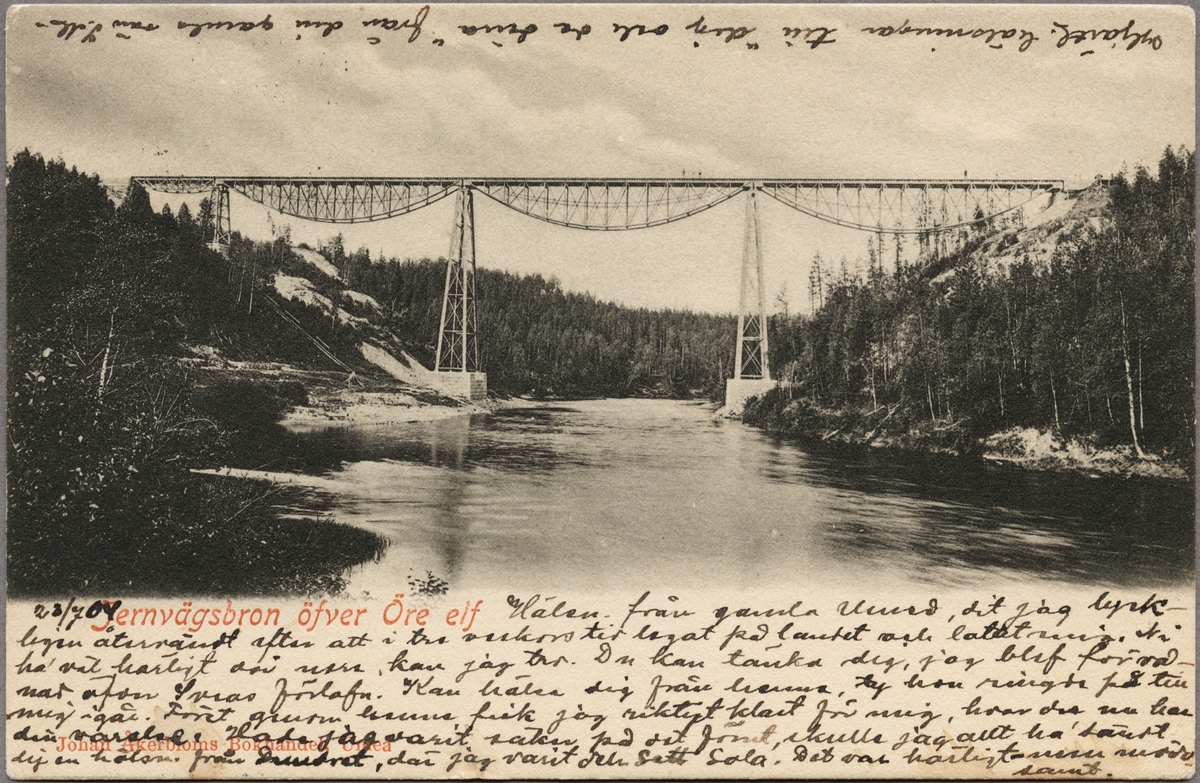 Hjärtl. hälsningar till dig och de dina från din gamla vän
23/7 04 Jernvägsbron öfver Öre elf
Hälsn. från gamla Umeå, dit jag lyck-
ligen återvändt efter att i tre veckors tid legat på landet och latat mig. Ni
ha väl härligt där nere, kan jag tro. Du kan tänka dig, jag blef förvå-
nad öfver Sveas förlofn. Kan hälsa dig från henne, ty hon ringde på till
mig igår. Först genom henne fick jag riktigt klart för mig, hvar du nu har
din varelse. Hade jag vetat saken på det förut, skulle jag allt ha sändt
Johan Åkerbloms Bokhandel, Umeå
dig en hälsn. från, där jag varit och sett Sola. Det var härligt
samt